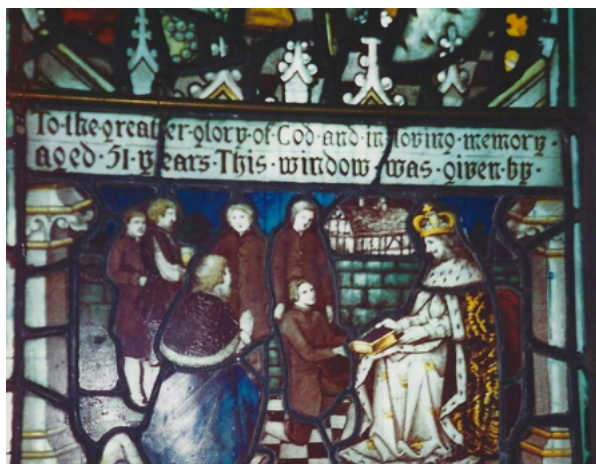 To·the·greater·glory·of·God·and·in·loving·memory·
aged·51·years·This·window·was·given·by·